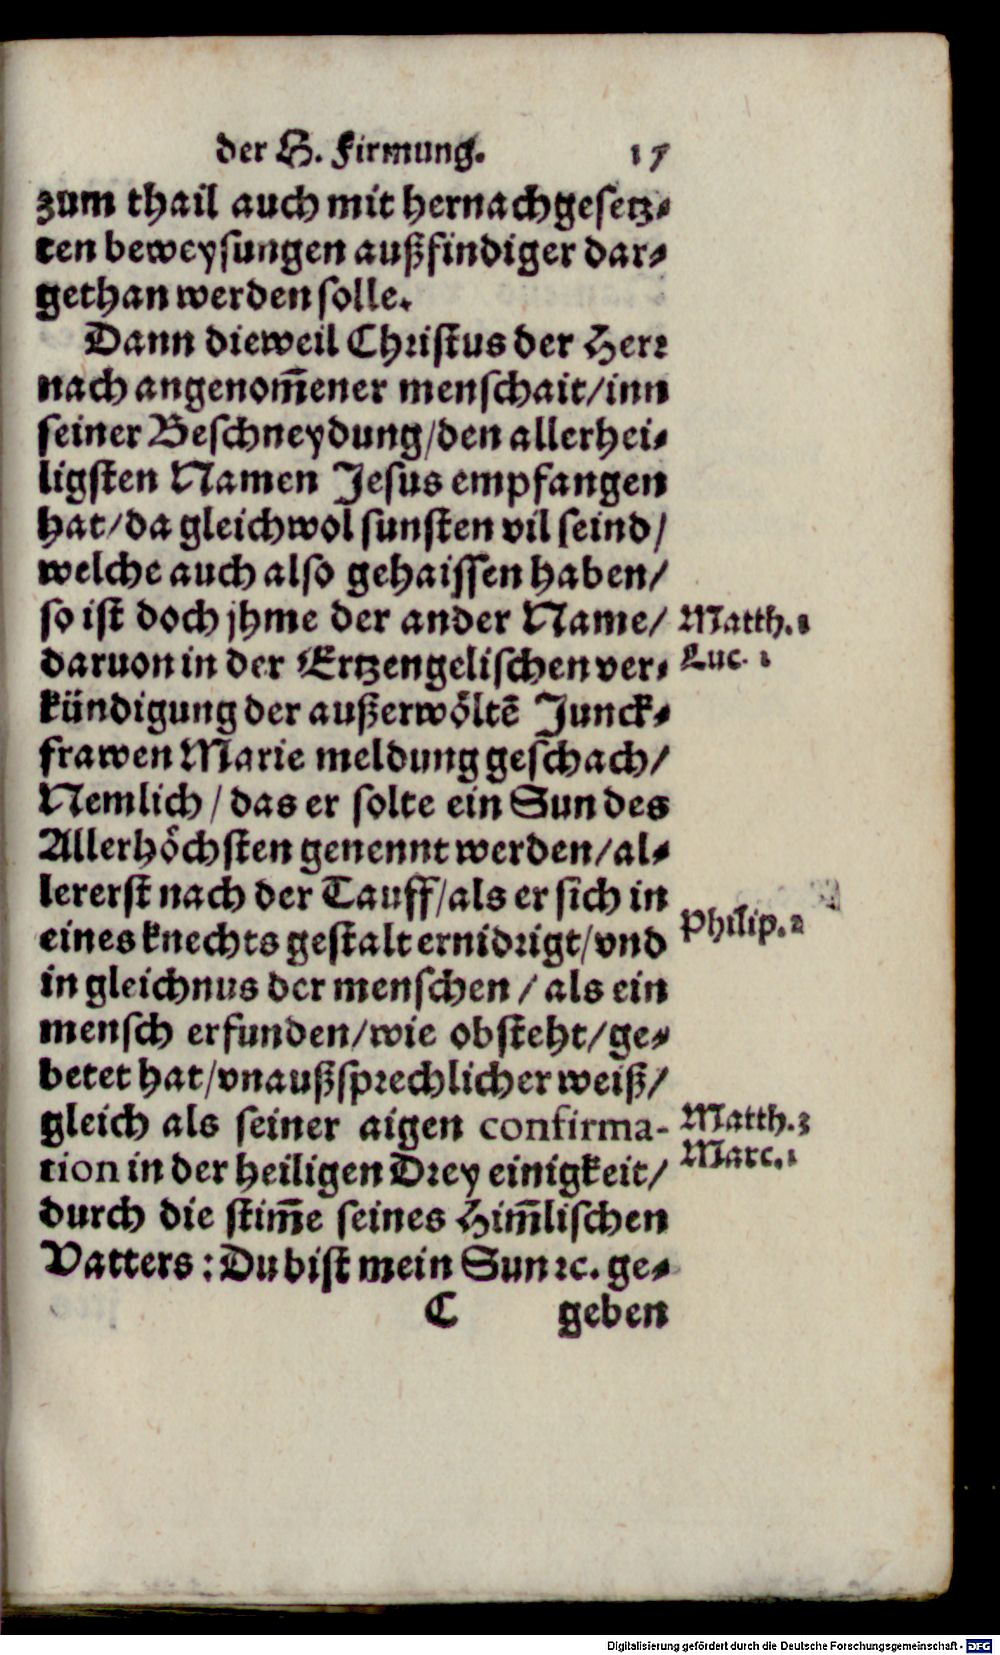 der H. Firmung. 17
zum thail auch mit hernachgesetz⸗
ten beweysungen außfindiger dar⸗
gethan werden solle.
Dann dieweil Christus der Herr
nach angenom̃ener menschait/inn
seiner Beschneydung/den allerhei⸗
ligsten Namen Jesus empfangen
hat/da gleichwol sunsten vil seind/
welche auch also gehaissen haben/
so ist doch jhme der ander Name/
Matth.1
daruon in der Ertzengelischen ver⸗
Luc. 1
kündigung der außerwöltẽ Junck⸗
frawen Marie meldung geschach/
Nemlich/das er solte ein Sun des
Allerhöchsten genennt werden/al⸗
lererst nach der Tauff/als er sich in
Philip.2
eines knechts gestalt ernidrigt/vnd
in gleichnus der menschen/als ein
mensch erfunden/wie obsteht/ge⸗
betet hat/vnaußsprechlicher weiß/
gleich als seiner aigen confirma-
Matth.3
tion in der heiligen Drey einigkeit/
Marc.1
durch die stim̃e seines Him̃lischen
Vatters: Du bist mein Sun ꝛc. ge⸗
C geben
Digitalisierung gefördert durch die Deutsche Forschungsgemeinschaft - DFG